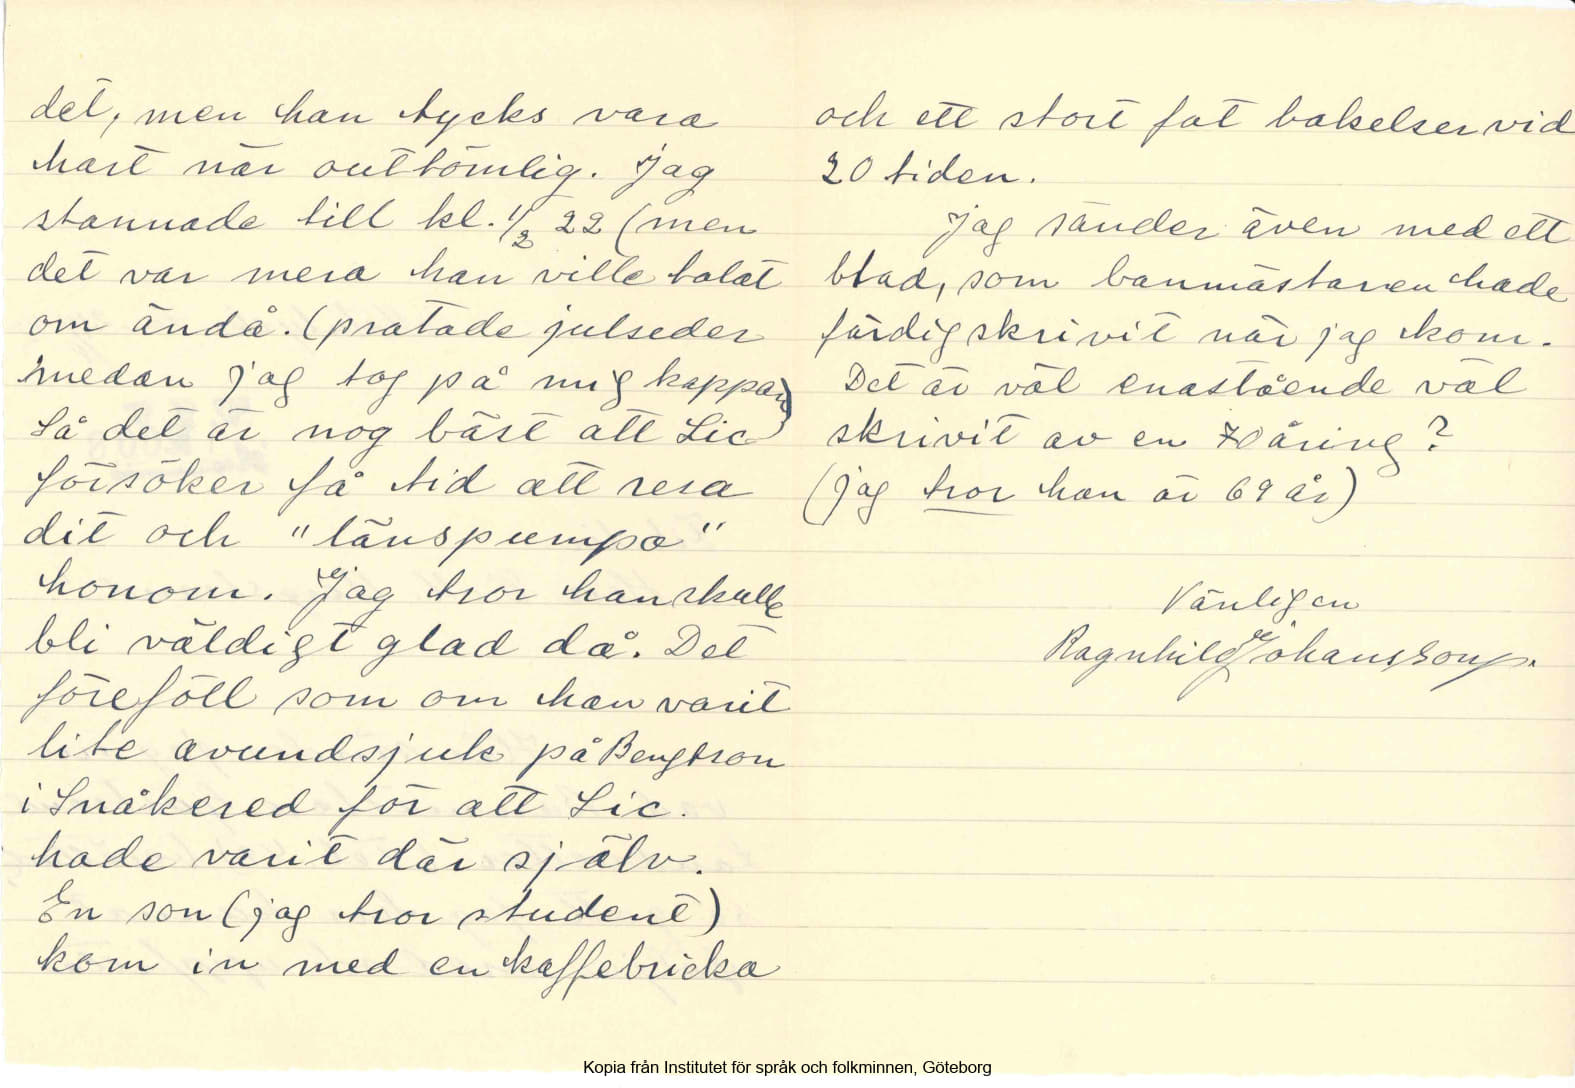 det, men han tycks vara
hart när outtömlig. Jag
stannade till kl. 1/2 22 (men
det var mera han ville talat
om ändå. (pratade julseder
medan jag tog på mig kappan)
Så det är nog bäst att Lic
försöker få tid att resa
dit och "länspumpa"
honom. Jag tror han skulle
bli väldigt glad då. Det
föreföll som om han varit
lite avundsjuk på Bengtson
i Snåkered för att Lic.
hade varit där själv.
En son (jag tror student)
kom in med en kaffebricka
och ett stort fat bakelser vid
20 tiden.
Jag sänder även med ett
blad, som banmästaren hade
färdigskrivit när jag kom.
Det är väl enastående väl
skrivit av en 70 åring?
(jag tror han är 69 år)
Vänligen
Ragnhild Johansson.
Kopia från Institutet för språk och folkminnen, Göteborg